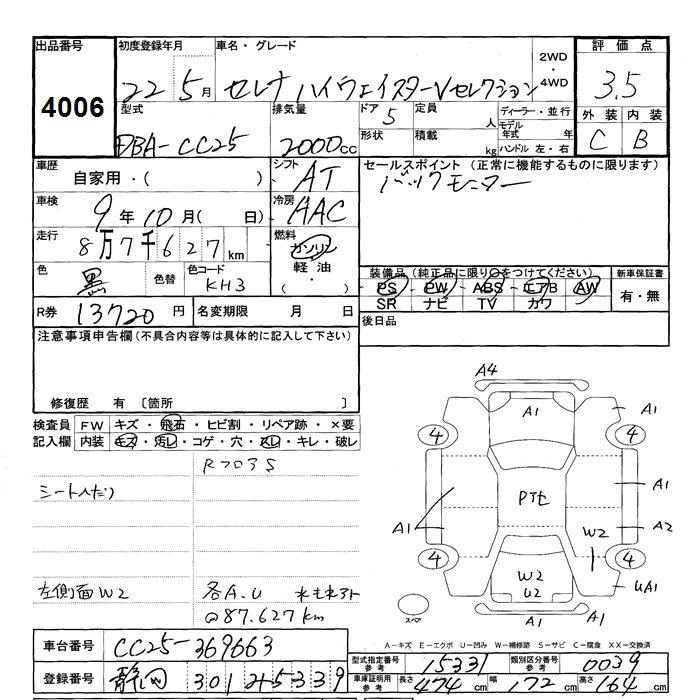 出品番号 初度登録年月 車名・グレード 2WD・4WD 評価点
4006 22 5月 セレナ ハイウェイスターVセレクション 3.5
型式 排気量 ドア 5 定員 人 ディーラー・並行 外装 内装
DBA-CC25 2000cc 形状 積載 kg モデル年式 年 ハンドル 左・右 C B
車歴 自家用・( ) シフト AT セールスポイント (正常に機能するものに限ります)
車検 9年10月( 日) 冷房 AAC バックモニター
走行 8万7千627km 燃料 ガソリン
色 黒 色替 色コード KH3 軽油・( ) 装備品 (純正品に限り○をつけてください) 新車保証書
PS PW ABS エアB AW 有・無
SR ナビ TV カワ
R券 13720円 名変期限 月 日 後日品
注意事項申告欄(不具合内容等は具体的に記入して下さい)
修復歴 有 〔箇所 〕
検査員 FW キズ・飛石・ヒビ割・リペア跡・×要
記入欄 内装 キズ・汚レ・コゲ・穴・スレ・キレ・破レ
R7035
シートへたり
左側面W2 各A.U
@87.627km
A4
A1 A1
4 4
A1
PTセ
A1 A2
W2
4 4
W2
U2 UA1
スペア A1 A1
車台番号 CC25-369663
A-キズ E-エクボ U-凹み W-補修跡 S-サビ C-腐食 XX-交換済
型式指定番号 参考 15331 類別区分番号 参考 0039
登録番号 静岡 301 そ5339
車庫証明用 参考 長さ 474cm 幅 172cm 高さ 164cm